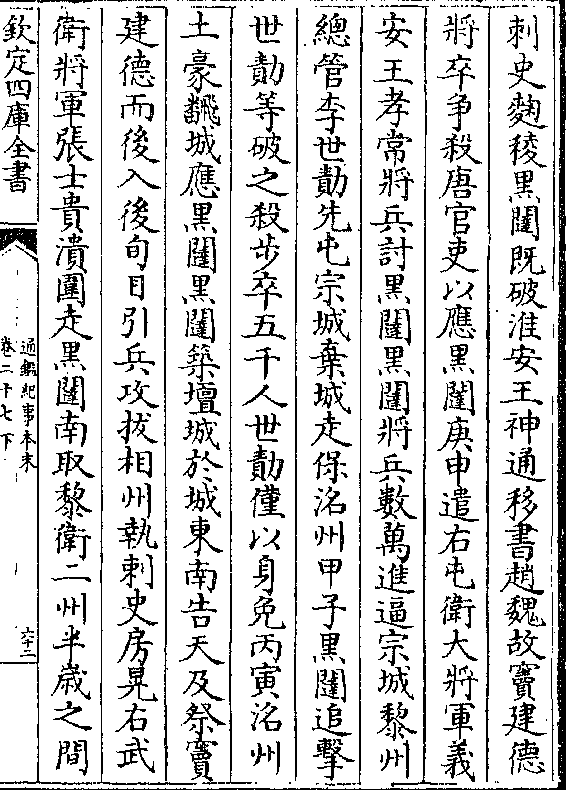 刺史麴稜黑闥既破淮安王神通移書趙魏故竇建德
將卒争殺唐官吏以應黑闥庚申遣右屯衛大將軍義
安王孝常將兵討黑闥黑闥將兵數萬進逼宗城黎州
總管李世勣先屯宗城棄城走保洺州甲子黑闥追擊
世勣等破之殺步卒五千人世勣僅以身免丙寅洺州
土豪翻城應黑闥黑闥築壇城於城東南告天及祭竇
建德而後入後旬日引兵攻拔相州執刺史房晃右武
衛將軍張士貴潰圍走黑闥南取黎衛二州半歲之間
欽定四庫全書
通鑑紀事本末
卷二十七下
六十二